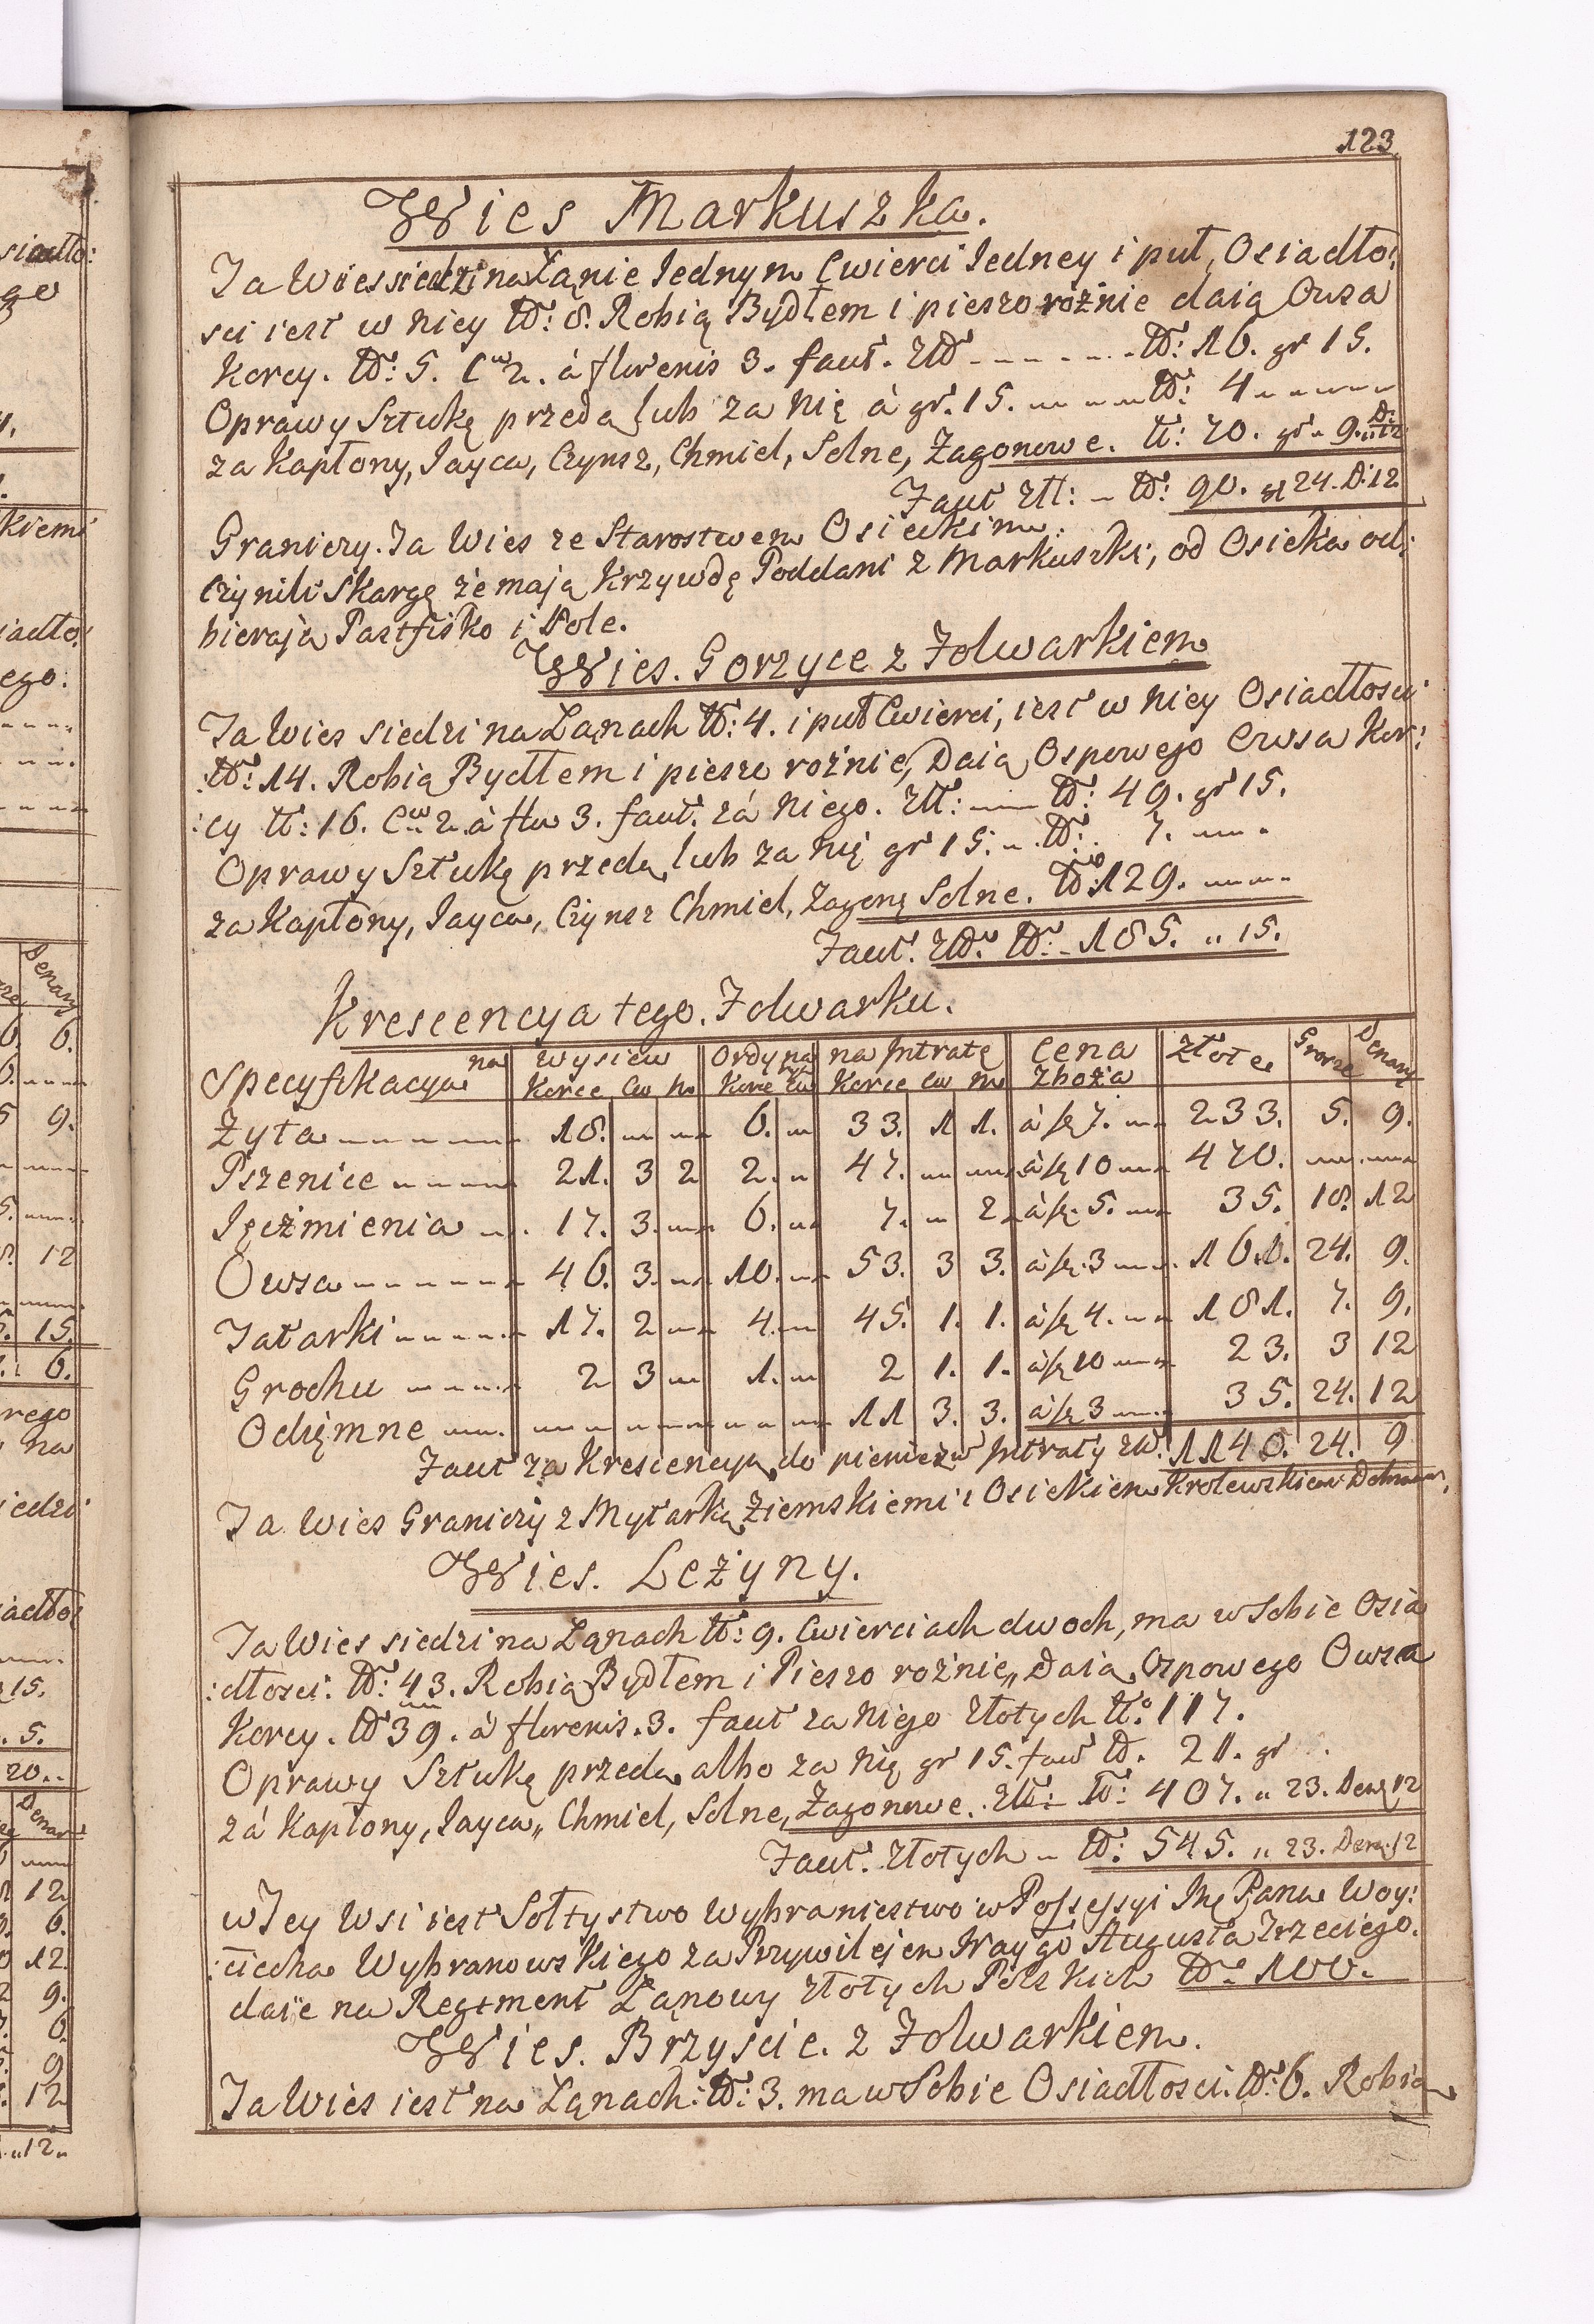 123
Wies Markuszka.
Ta Wies siedzi na Łanie Iednym Cwierci Iedney i puł, Osiadło:
sci iest w niey № 8. Robią Bydłem i pieszo rożnie daią Owsa
Korcy. № 5. Cw 2. á florenis 3. facit. Zł № 16. gr 15.
Oprawy Sztukę przedą lub za Nię á gr. 15. № 4
za Kapłony, Iayca, Czynsz, Chmiel, Solne, Zagonowe. № 70. gr. 9. D: 12
Facit Złł: № 90. gr 24. D. 12
Graniczy. Ta Wies ze Starostwem Osieckim.
Czynili Skargę że mają Krzywdę Poddani z Markuszki, od Osieka od:
bieraja Pastfisko i Pole.
Wies. Gorzyce z Folwarkiem
Ta Wies siedzi na Łanach № 4. i puł Cwierci, iest w niey Osiadłosci
:№ 14. Robią Bydłem i pieszo rożnie, Daią Ospowego Owsa Kor:
:cy № 16. Cw 2. á flo 3. facit. zá Niego. Złł: № 49. gr 15.
Oprawy Sztukę przedą, lub za Nię gr 15. № 7.
za Kapłony, Iayca, Czynsz Chmiel, Zagonę Solne. № 129.
Facit. Zł № 185. " 15.
Krescencya tego. Folwarku.
Specyfikacya na Wysiew Ordyna na Intratę Cena Złote Grosze Denary
Korce Cw Korce Cw Korce Cw Zboża
Żyta 18. 6. 33. 1 1. á fl 7. 233. 5. 9.
Pszenice 21. 3 2 2. 47. á fl 10 470.
Ięczmienia 17. 3. 6. 7. 2 á fl. 5. 35. 18. 12
Owsa 46. 3. 10. 53. 3 3. á fl. 3 161. 24. 9.
Tatarki 17. 2 4. 45. 1. 1. á fl 4. 181. 7. 9.
Grochu 2 3 1. 2 1. 1. á fl 10 23. 3 12
Odsiemne 11 3. 3. á fl 3 35. 24. 12
Facit za Krescencyą do pienięż Intraty Zł. 1140. 24. 9
Ta Wies Graniczy z Mytarką Ziemskiemi i Osiekiem Krolewskiem
Wies. Leżyny.
Ta Wies siedzi na Łanach № 9. Cwierciach dwoch, ma w Sobie Osia
:dłosci. № 43. Robią Bydłem i Pieszo rożnie, Daią Ospowego Owsa
Korcy. № 39. á florenis. 3. facit za Niego Złotych № 117.
Oprawy Sztukę przedą albo za Nię gr 15. faci № 21. gr
zá Kapłony, Iayca, Chmiel, Solne, Zagonowe. Złł: № 407. " 23. Den 12
Facit. Złotych № 545. " 23. Den. 12
w Tey Wsi iest Sołtystwo Wybraniestwo w Possessyi Ime Pana Woy:
:ciecha Wybranowskiego za Przywilejem Naygo Augusta Trzeciego.
daie na Regiment Łanowy Złotych Polskich № 100.
Wies. Brzyscie. z Folwarkiem.
Ta Wies iest na Łanach: № 3. ma w Sobie Osiadłosci. № 6. Robią